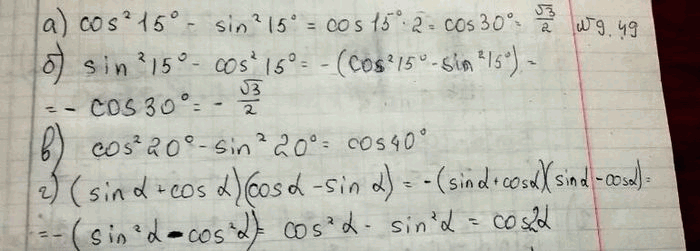 а) cos²15° - sin²15° = cos15°·2 = cos30° = √3/2 № 9.49
б) sin²15° - cos²15° = -(cos²15° - sin²15°) =
= - cos30° = - √3/2
в) cos²20° - sin²20° = cos40°
г) (sinα + cosα)(cosα - sinα) = -(sinα + cosα)(sinα - cosα) =
= -(sin²α - cos²α) = cos²α - sin²α = cos2α